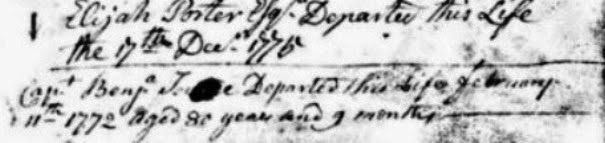 Elijah Porter Esqr. Departed this Life
the 17th Decr. 1775
Capt Benja Departed this Life February
11th 1772 Aged 80 years and 9 months